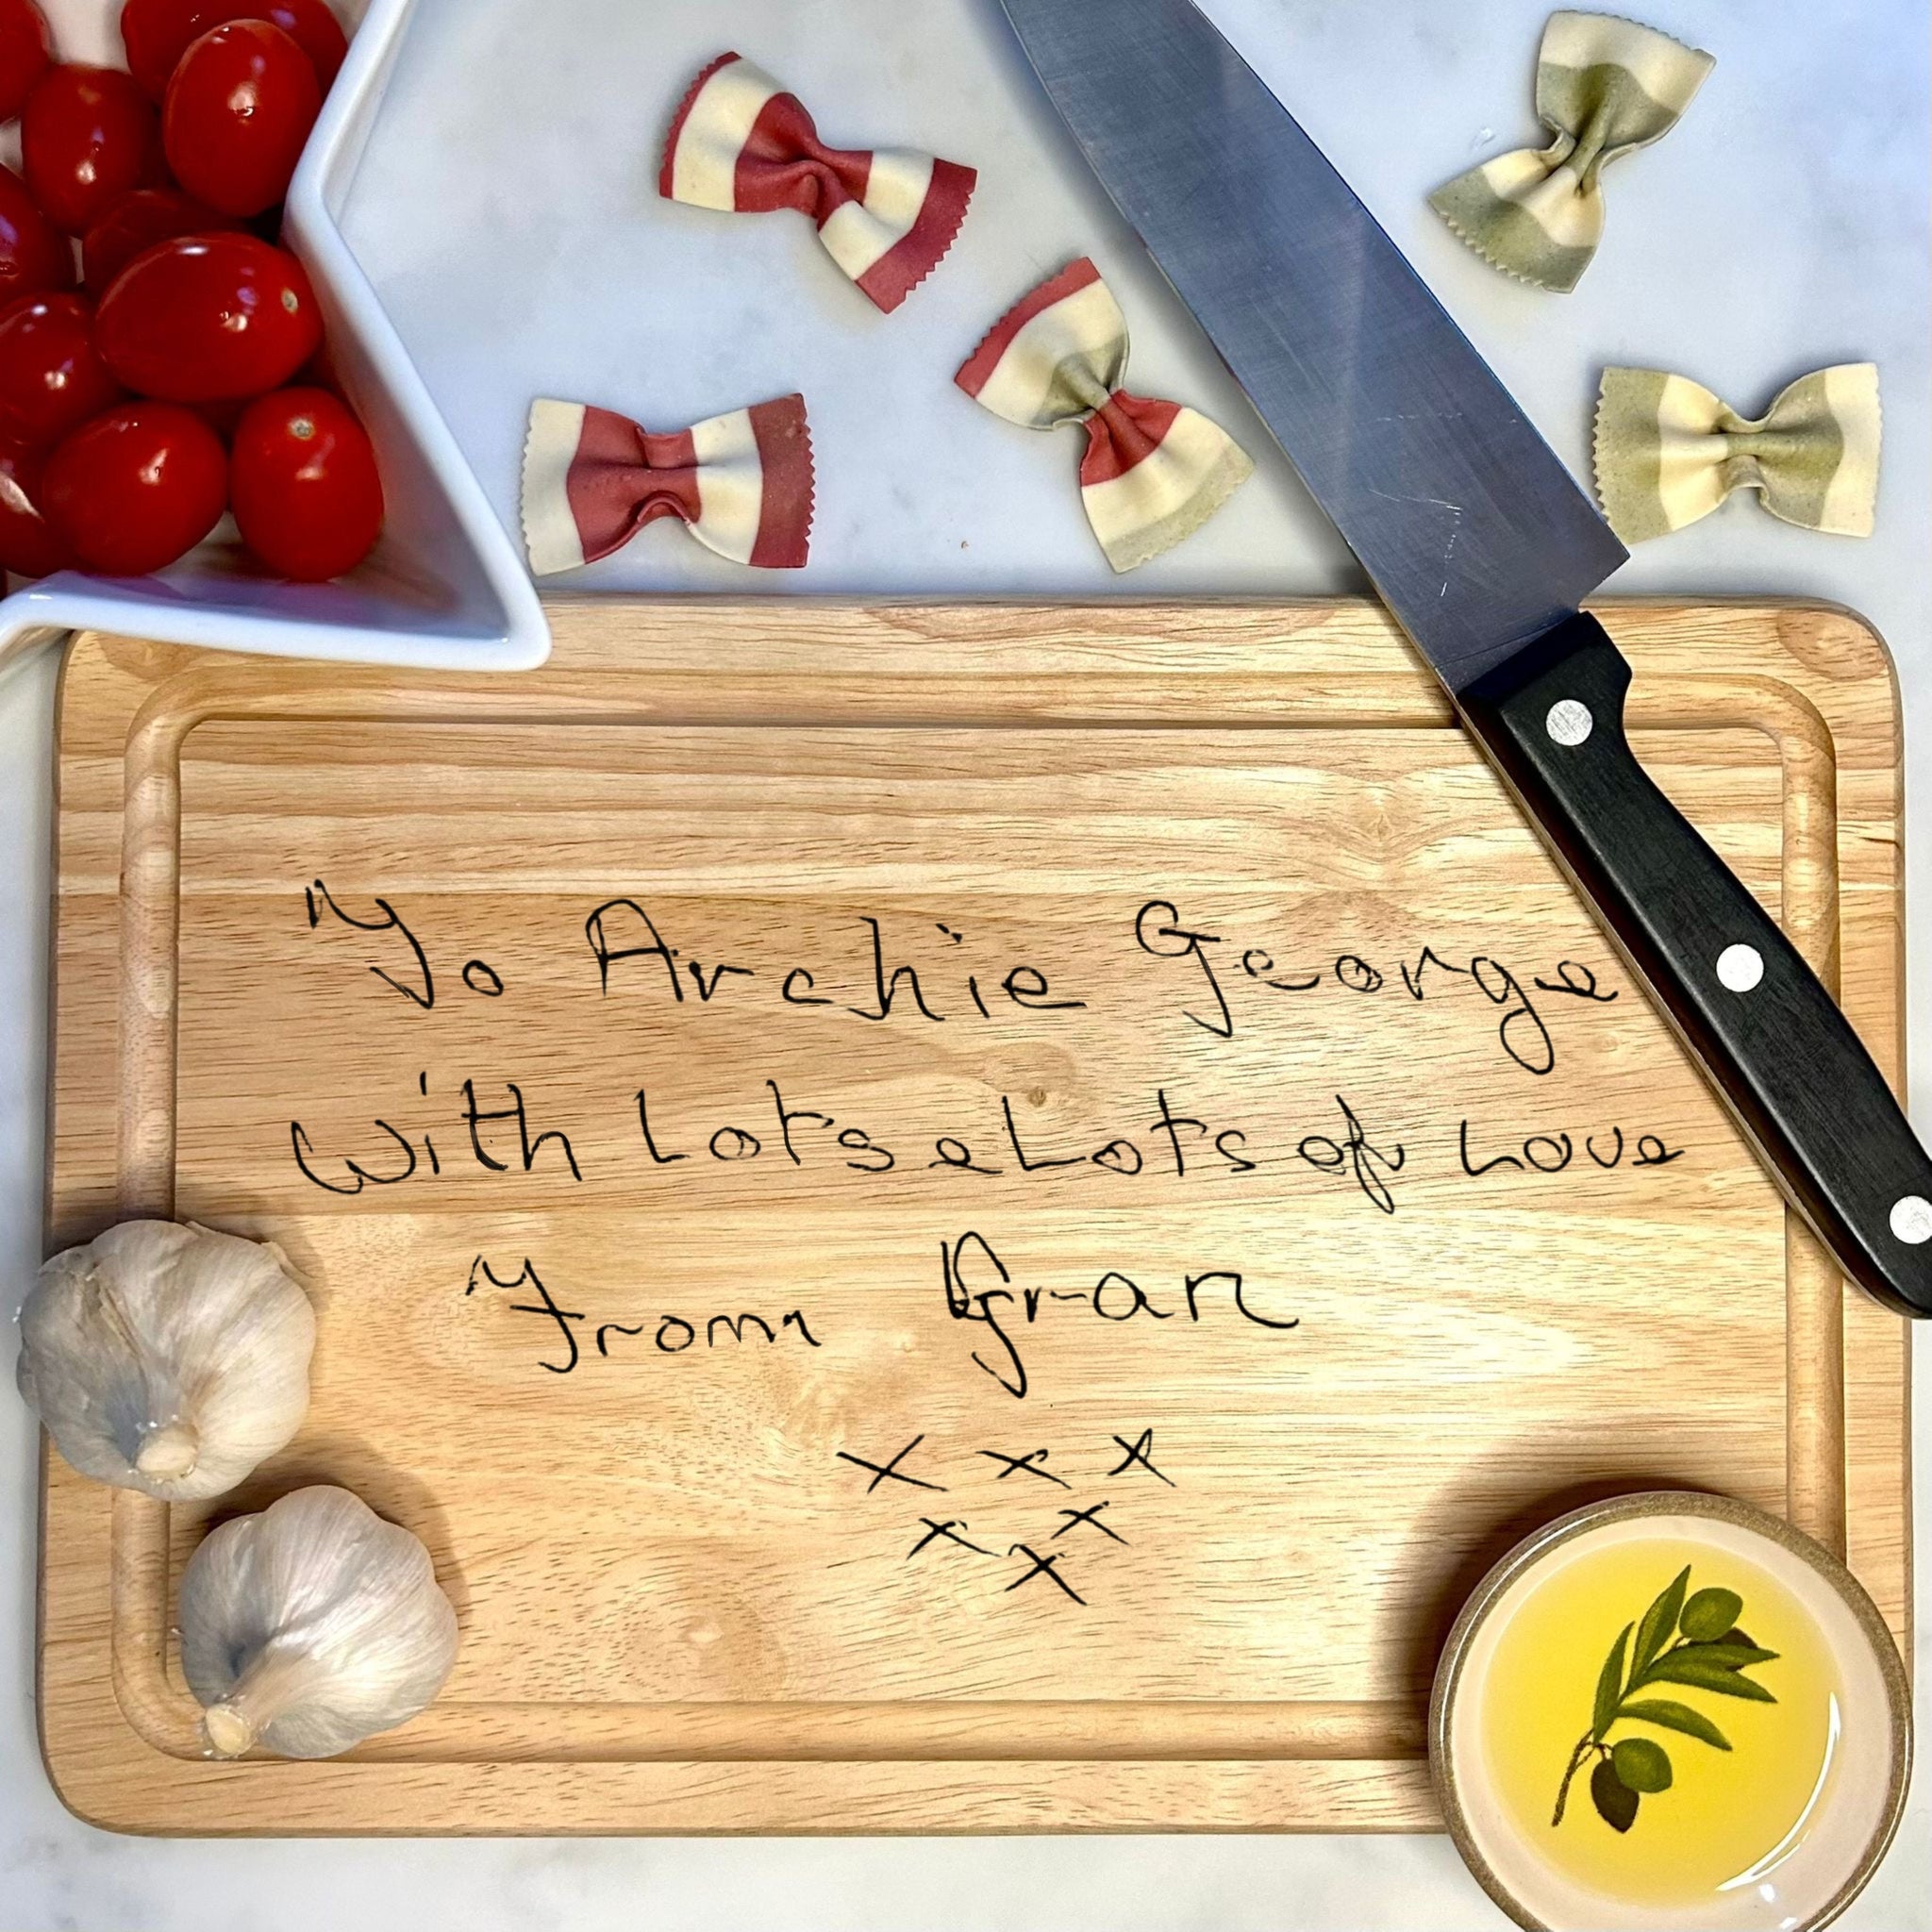 To Archie George
with Lots & Lots of Love
From Gran
x x x
x x
x